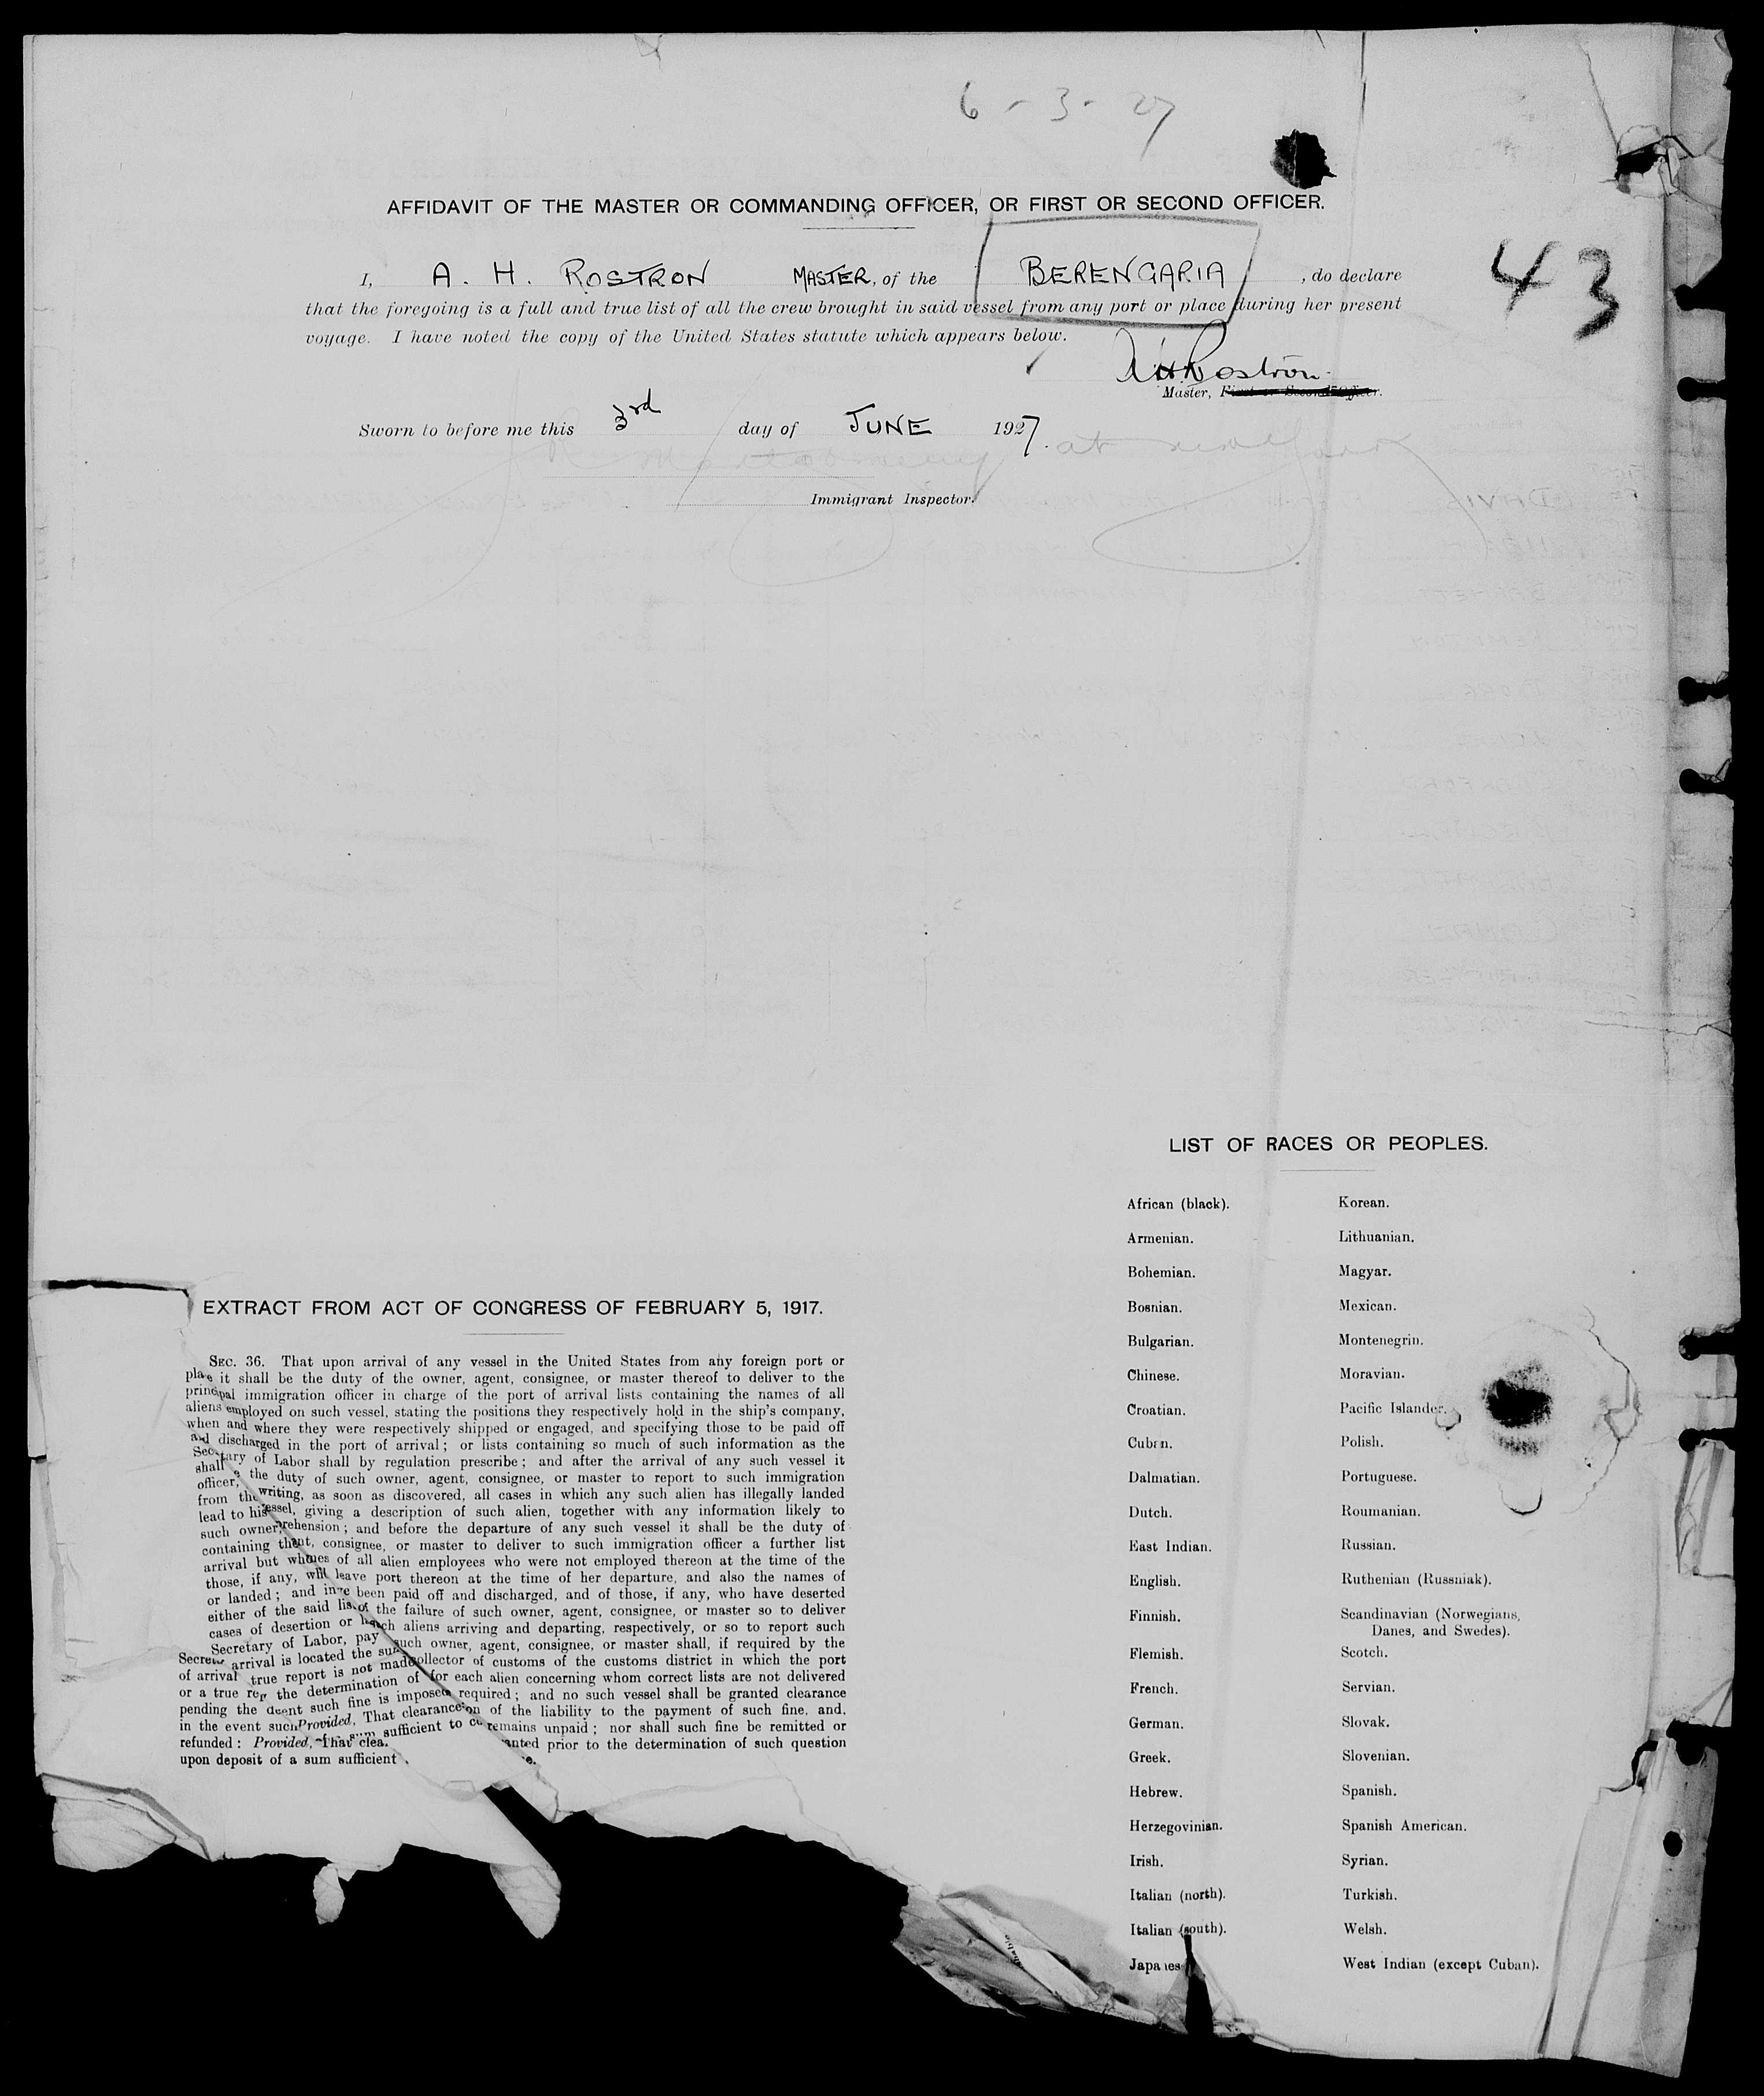 6 - 3 - 27
AFFIDAVIT OF THE MASTER OR COMMANDING OFFICER, OR FIRST OR SECOND OFFICER.
43
I, A. H. ROSTRON MASTER, of the BERENGARIA, do declare
that the foregoing is a full and true list of all the crew brought in said vessel from any port or place during her present
voyage. I have noted the copy of the United States statute which appears below.
A H Rostron
Master, First or Second Officer.
Sworn to before me this 3rd day of JUNE 1927. at New York
Immigrant Inspector.
EXTRACT FROM ACT OF CONGRESS OF FEBRUARY 5, 1917.
SEC. 36. That upon arrival of any vessel in the United States from any foreign port or
place it shall be the duty of the owner, agent, consignee, or master thereof to deliver to the
principal immigration officer in charge of the port of arrival lists containing the names of all
aliens employed on such vessel, stating the positions they respectively hold in the ship's company,
when and where they were respectively shipped or engaged, and specifying those to be paid off
and discharged in the port of arrival; or lists containing so much of such information as the
Secretary of Labor shall by regulation prescribe; and after the arrival of any such vessel it
shall the duty of such owner, agent, consignee, or master to report to such immigration
officer, writing, as soon as discovered, all cases in which any such alien has illegally landed
from the essel, giving a description of such alien, together with any information likely to
lead to his rehension; and before the departure of any such vessel it shall be the duty of
such owner, nt, consignee, or master to deliver to such immigration officer a further list
containing the mes of all alien employees who were not employed thereon at the time of the
arrival but wh will leave port thereon at the time of her departure, and also the names of
those, if any, w ve been paid off and discharged, and of those, if any, who have deserted
or landed; and in of the failure of such owner, agent, consignee, or master so to deliver
either of the said lis ch aliens arriving and departing, respectively, or so to report such
cases of desertion or such owner, agent, consignee, or master shall, if required by the
Secretary of Labor, pay ollector of customs of the customs district in which the port
of arrival is located the su for each alien concerning whom correct lists are not delivered
or a true report is not made required; and no such vessel shall be granted clearance
pending the determination of on of the liability to the payment of such fine, and,
in the event such fine is imposed remains unpaid; nor shall such fine be remitted or
refunded: Provided, That clearance anted prior to the determination of such question
upon deposit of a sum sufficient to e.
LIST OF RACES OR PEOPLES.
African (black). Korean.
Armenian. Lithuanian.
Bohemian. Magyar.
Bosnian. Mexican.
Bulgarian. Montenegrin.
Chinese. Moravian.
Croatian. Pacific Islander.
Cuban. Polish.
Dalmatian. Portuguese.
Dutch. Roumanian.
East Indian. Russian.
English. Ruthenian (Russniak).
Finnish. Scandinavian (Norwegians,
Danes, and Swedes).
Flemish. Scotch.
French. Servian.
German. Slovak.
Greek. Slovenian.
Hebrew. Spanish.
Herzegovinian. Spanish American.
Irish. Syrian.
Italian (north). Turkish.
Italian (south). Welsh.
Japanes West Indian (except Cuban).